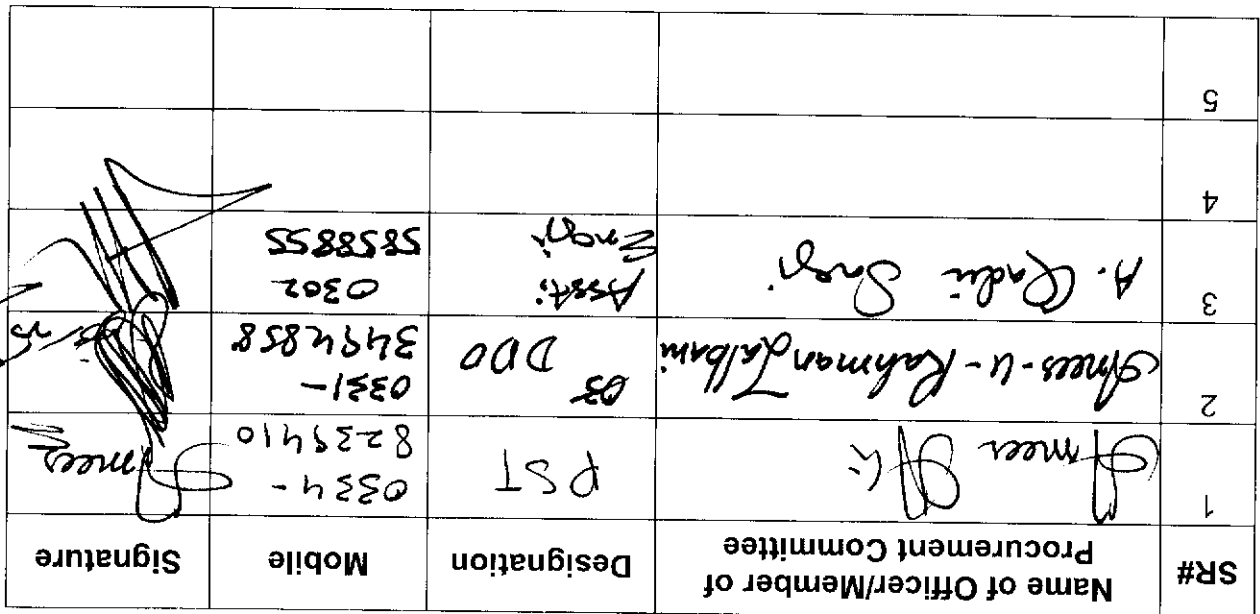 SR# Name of Officer/Member of Procurement Committee Designation Mobile Signature
1 Ameer Ali PST 0334-8239410 Ameer
2 Anees-u-Rahman Jalbani DDO 0331-3494858
3 A. Qadir Asstt: Engr 0302 5858855
4
5